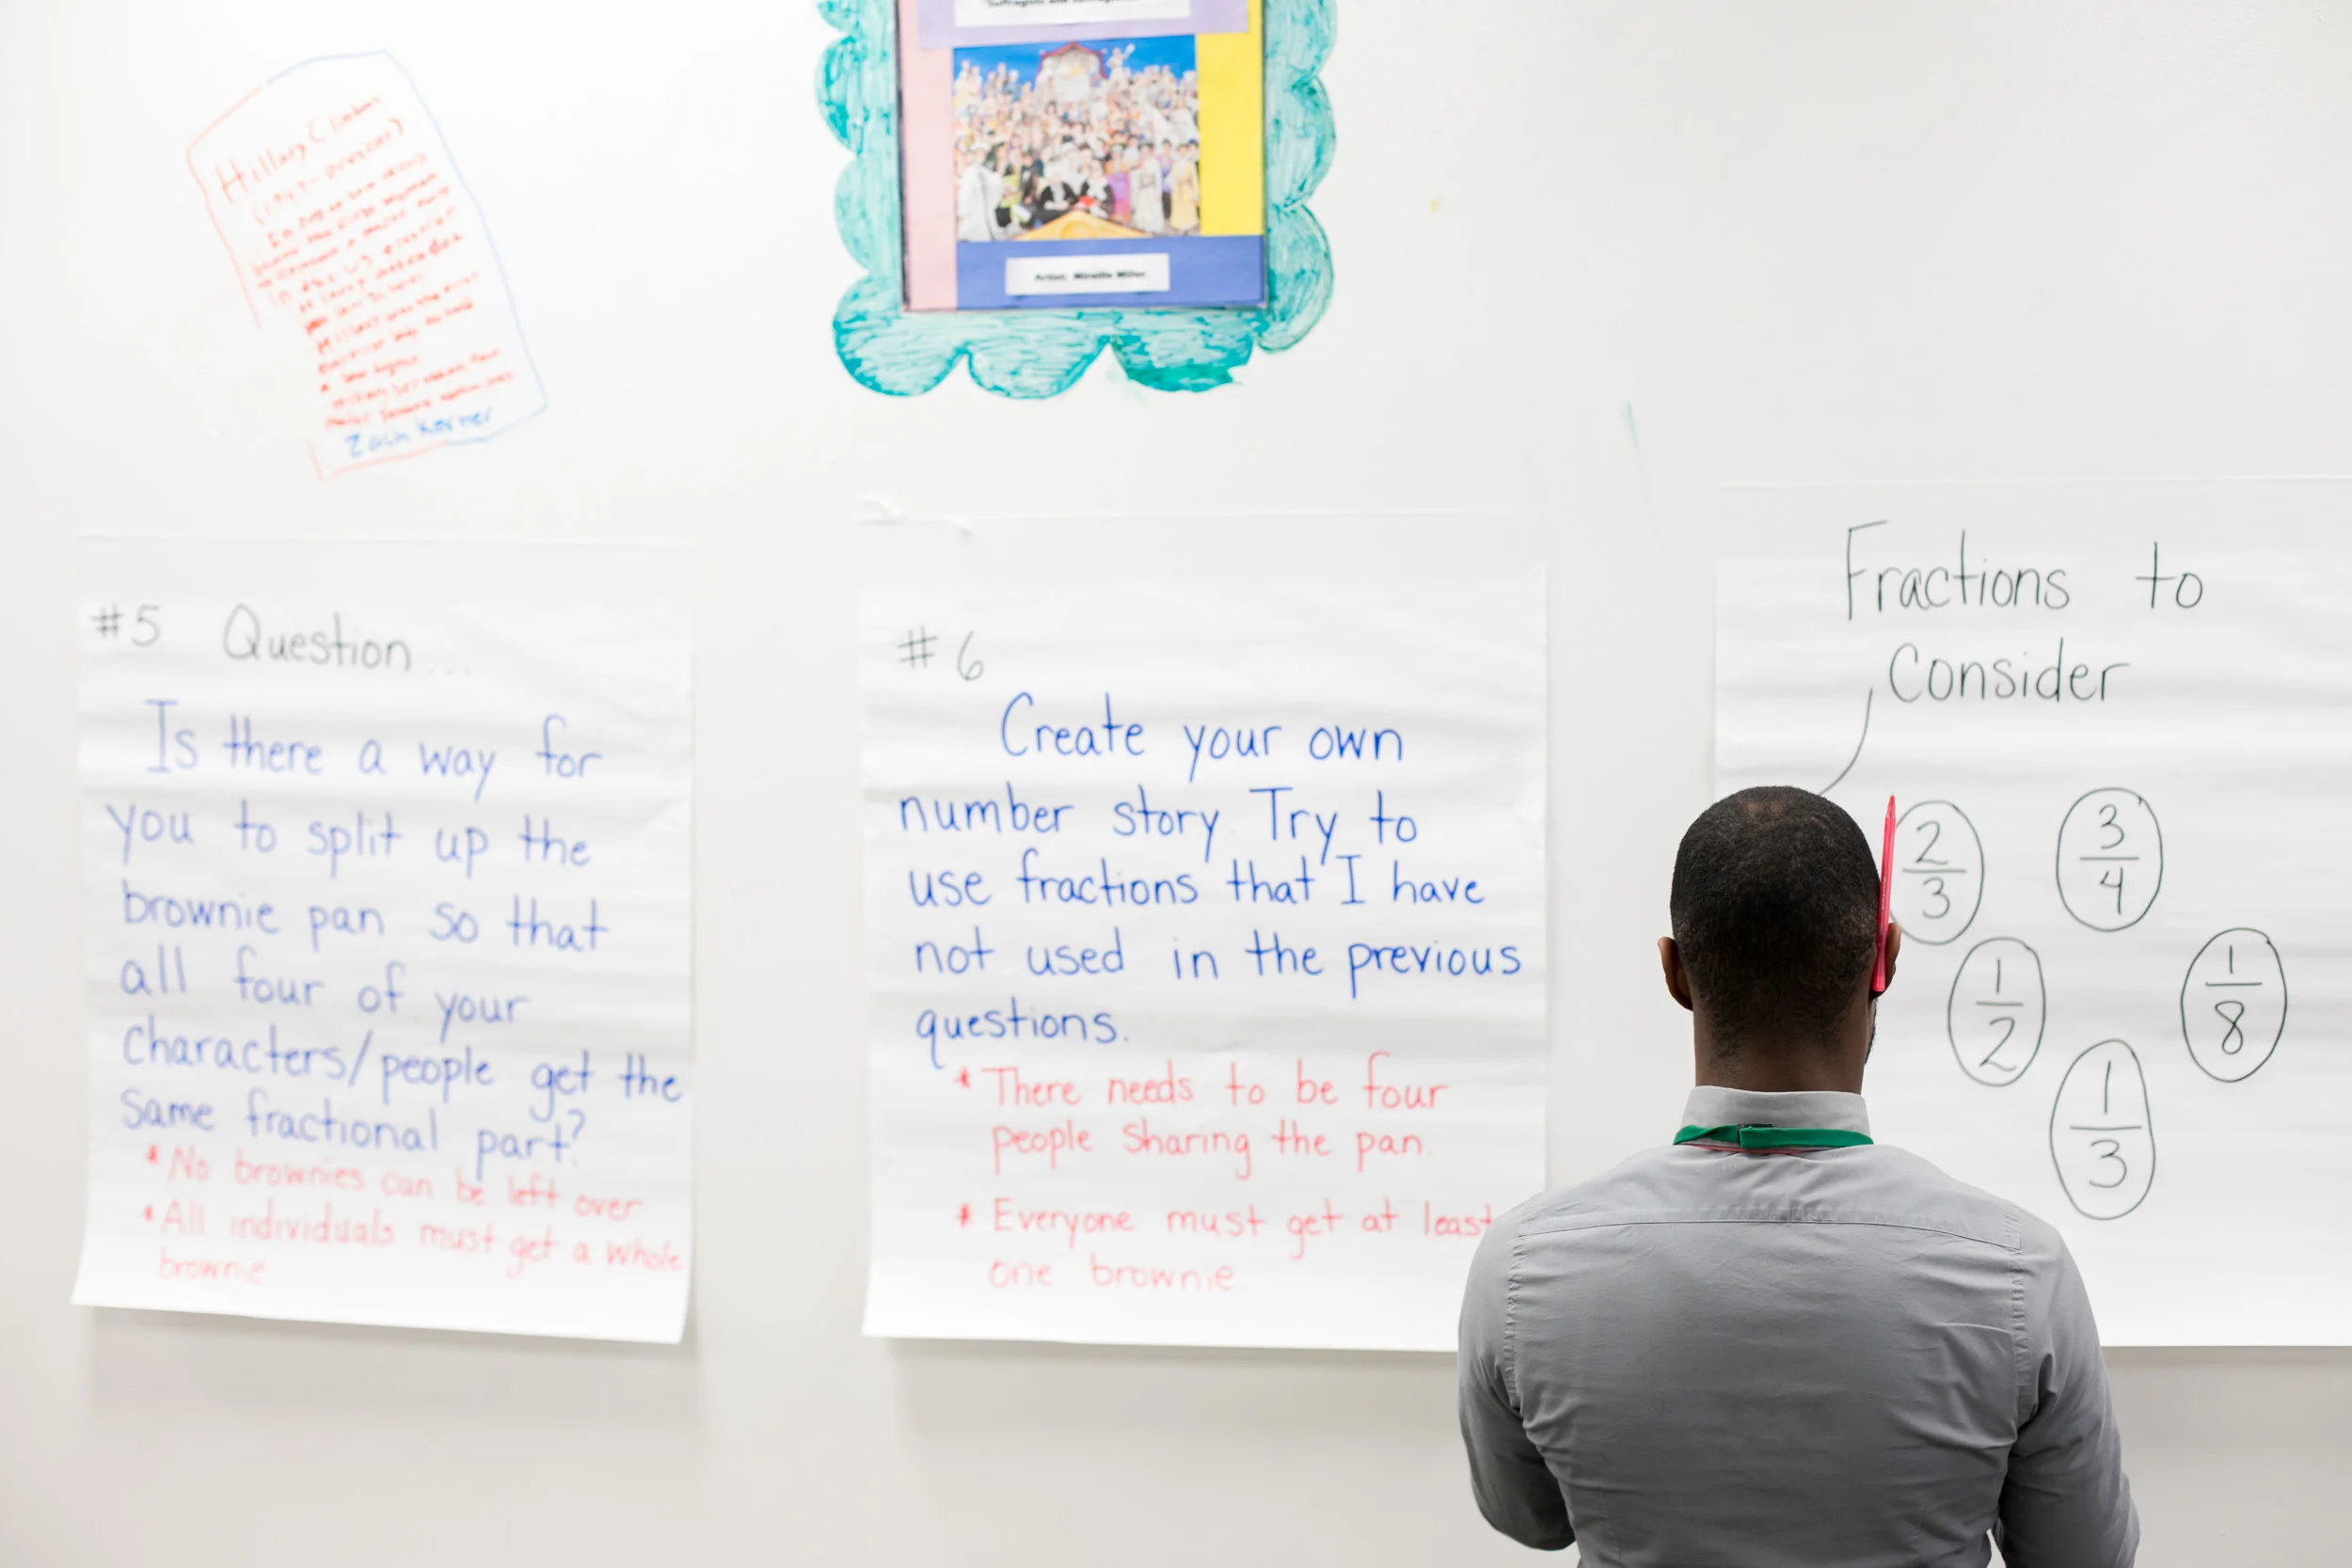 Hillary Clinton
(1947-present)
Zach Korner
Suffragists and
Artist: Mireille Miller
#5 Question...
Is there a way for
you to split up the
brownie pan so that
all four of your
characters/people get the
same fractional part?
* No brownies can be left over
* All individuals must get a whole
brownie
#6
Create your own
number story. Try to
use fractions that I have
not used in the previous
questions.
* There needs to be four
people sharing the pan.
* Everyone must get at least
one brownie.
Fractions to
Consider
2/3
3/4
1/2
1/8
1/3